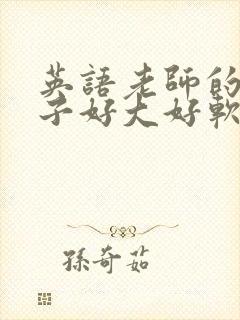 英語老師的
子好大好軟
孫奇茹